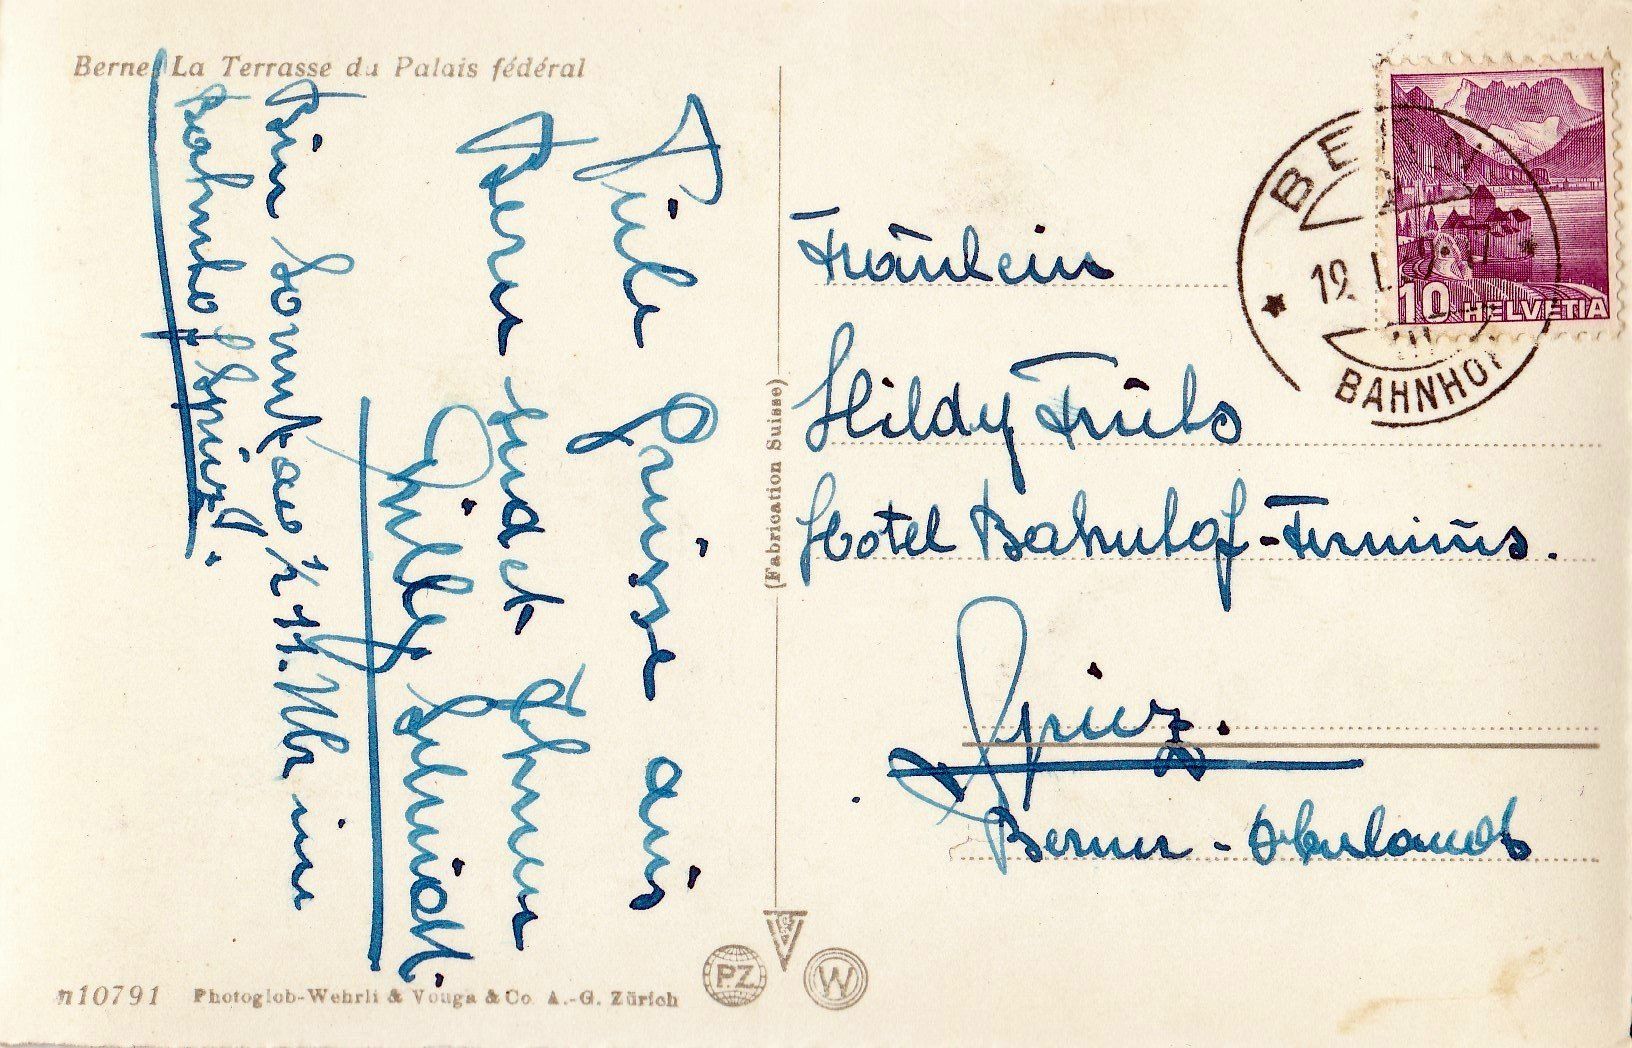 Berne, La Terrasse du Palais fédéral
Viele Grüsse aus
Bern sendet Ihnen
Willy Schmidt.
Bin Sonntag ½ 11. Uhr im
Bahnhof Spiez.
(Fabrication Suisse)
n10791 Photoglob-Wehrli & Vouga & Co. A.-G. Zürich
P.Z.
W
BERN 2
19. I.
BAHNHOF
10 HELVETIA
Fräulein
Hildy
Hotel Bahnhof-Terminus.
Spiez.
Berner-Oberland